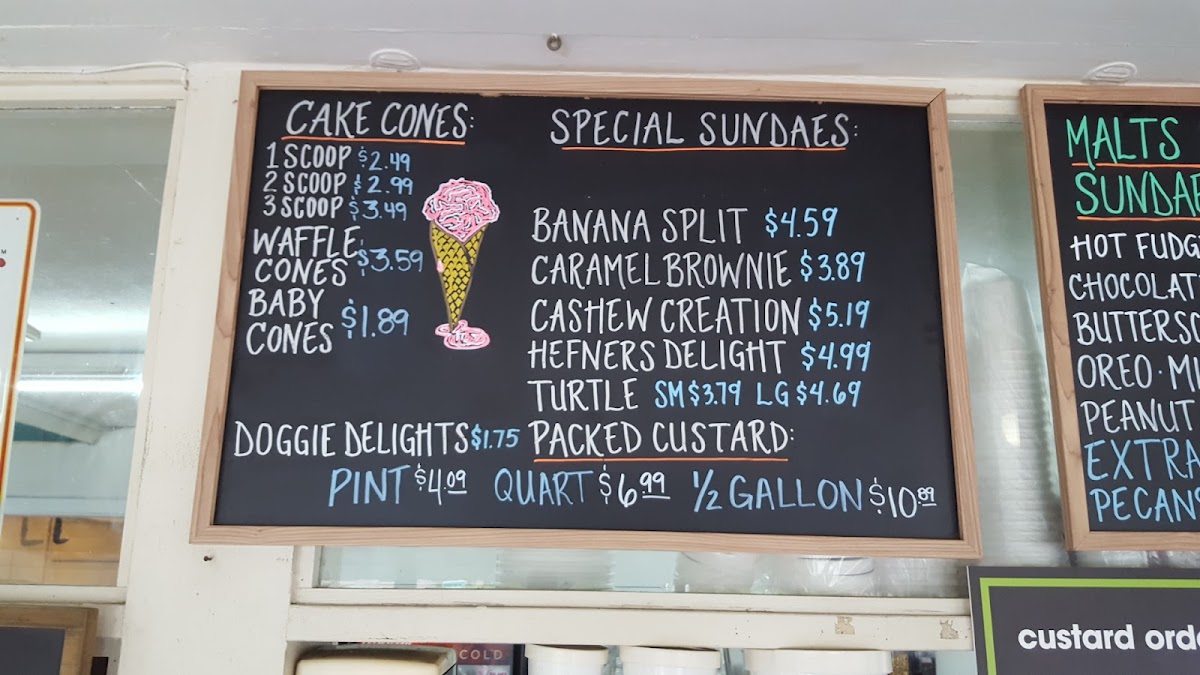 CAKE CONES:
1 SCOOP $2.49
2 SCOOP $2.99
3 SCOOP $3.49
WAFFLE
CONES $3.59
BABY
CONES $1.89
DOGGIE DELIGHTS $1.75
SPECIAL SUNDAES:
BANANA SPLIT $4.59
CARAMEL BROWNIE $3.89
CASHEW CREATION $5.19
HEFNERS DELIGHT $4.99
TURTLE SM $3.79 LG $4.69
PACKED CUSTARD:
PINT $4.09 QUART $6.99 1/2 GALLON $10.89
MALTS
SUNDAE
HOT FUDG
CHOCOLAT
BUTTERSC
OREO · MI
PEANUT
EXTRA
PECANS
custard orde
COLD